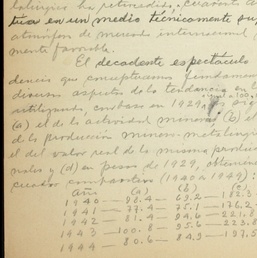 tua en un medio técnicamente su
atmósfera de mercado internacional
mente favorable.
El decadente espectáculo
dencia que conceptuamos fundamen
diversos aspectos de la tendencia en
utilizando como base en 1929
(a) el de la actividad minera (b) el
de la producción minero-metalúrgica
el del valor real de la misma produc
y (d) en pesos de 1929, obtenien
cuadro comparativo (1940 a 1949):
Año (a) (b) (c)
1940 — 98.4 — 69.2 — 182.3
1941 — 77.4 — 75.1 — 176.2
1942 — 81.4 — 94.6 — 221.8
1943 — 100.8 — 95.6 — 223.8
1944 — 80.6 — 84.9 — 197.5